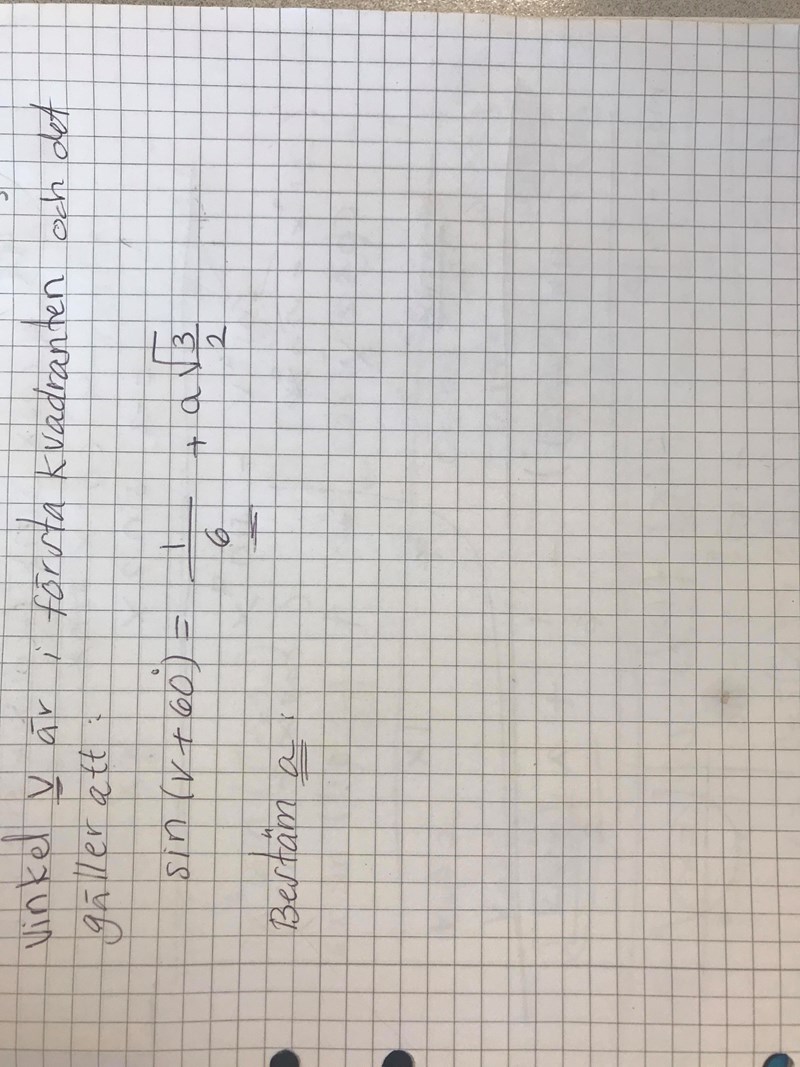 Vinkel v är i första kvadranten och det
gäller att:
sin (v + 60°) = 1/6 + a √3/2
Bestäm a.